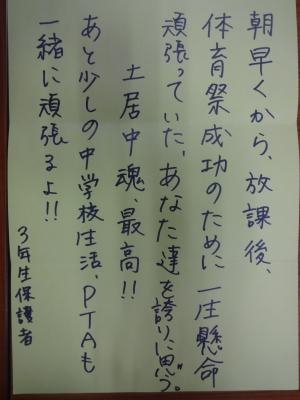 朝早くから、放課後、
体育祭成功のために一生懸命
頑張っていた、あなた達を誇りに思う。
土居中魂、最高!!
あと少しの中学校生活、PTAも
一緒に頑張るよ!!
3年生保護者